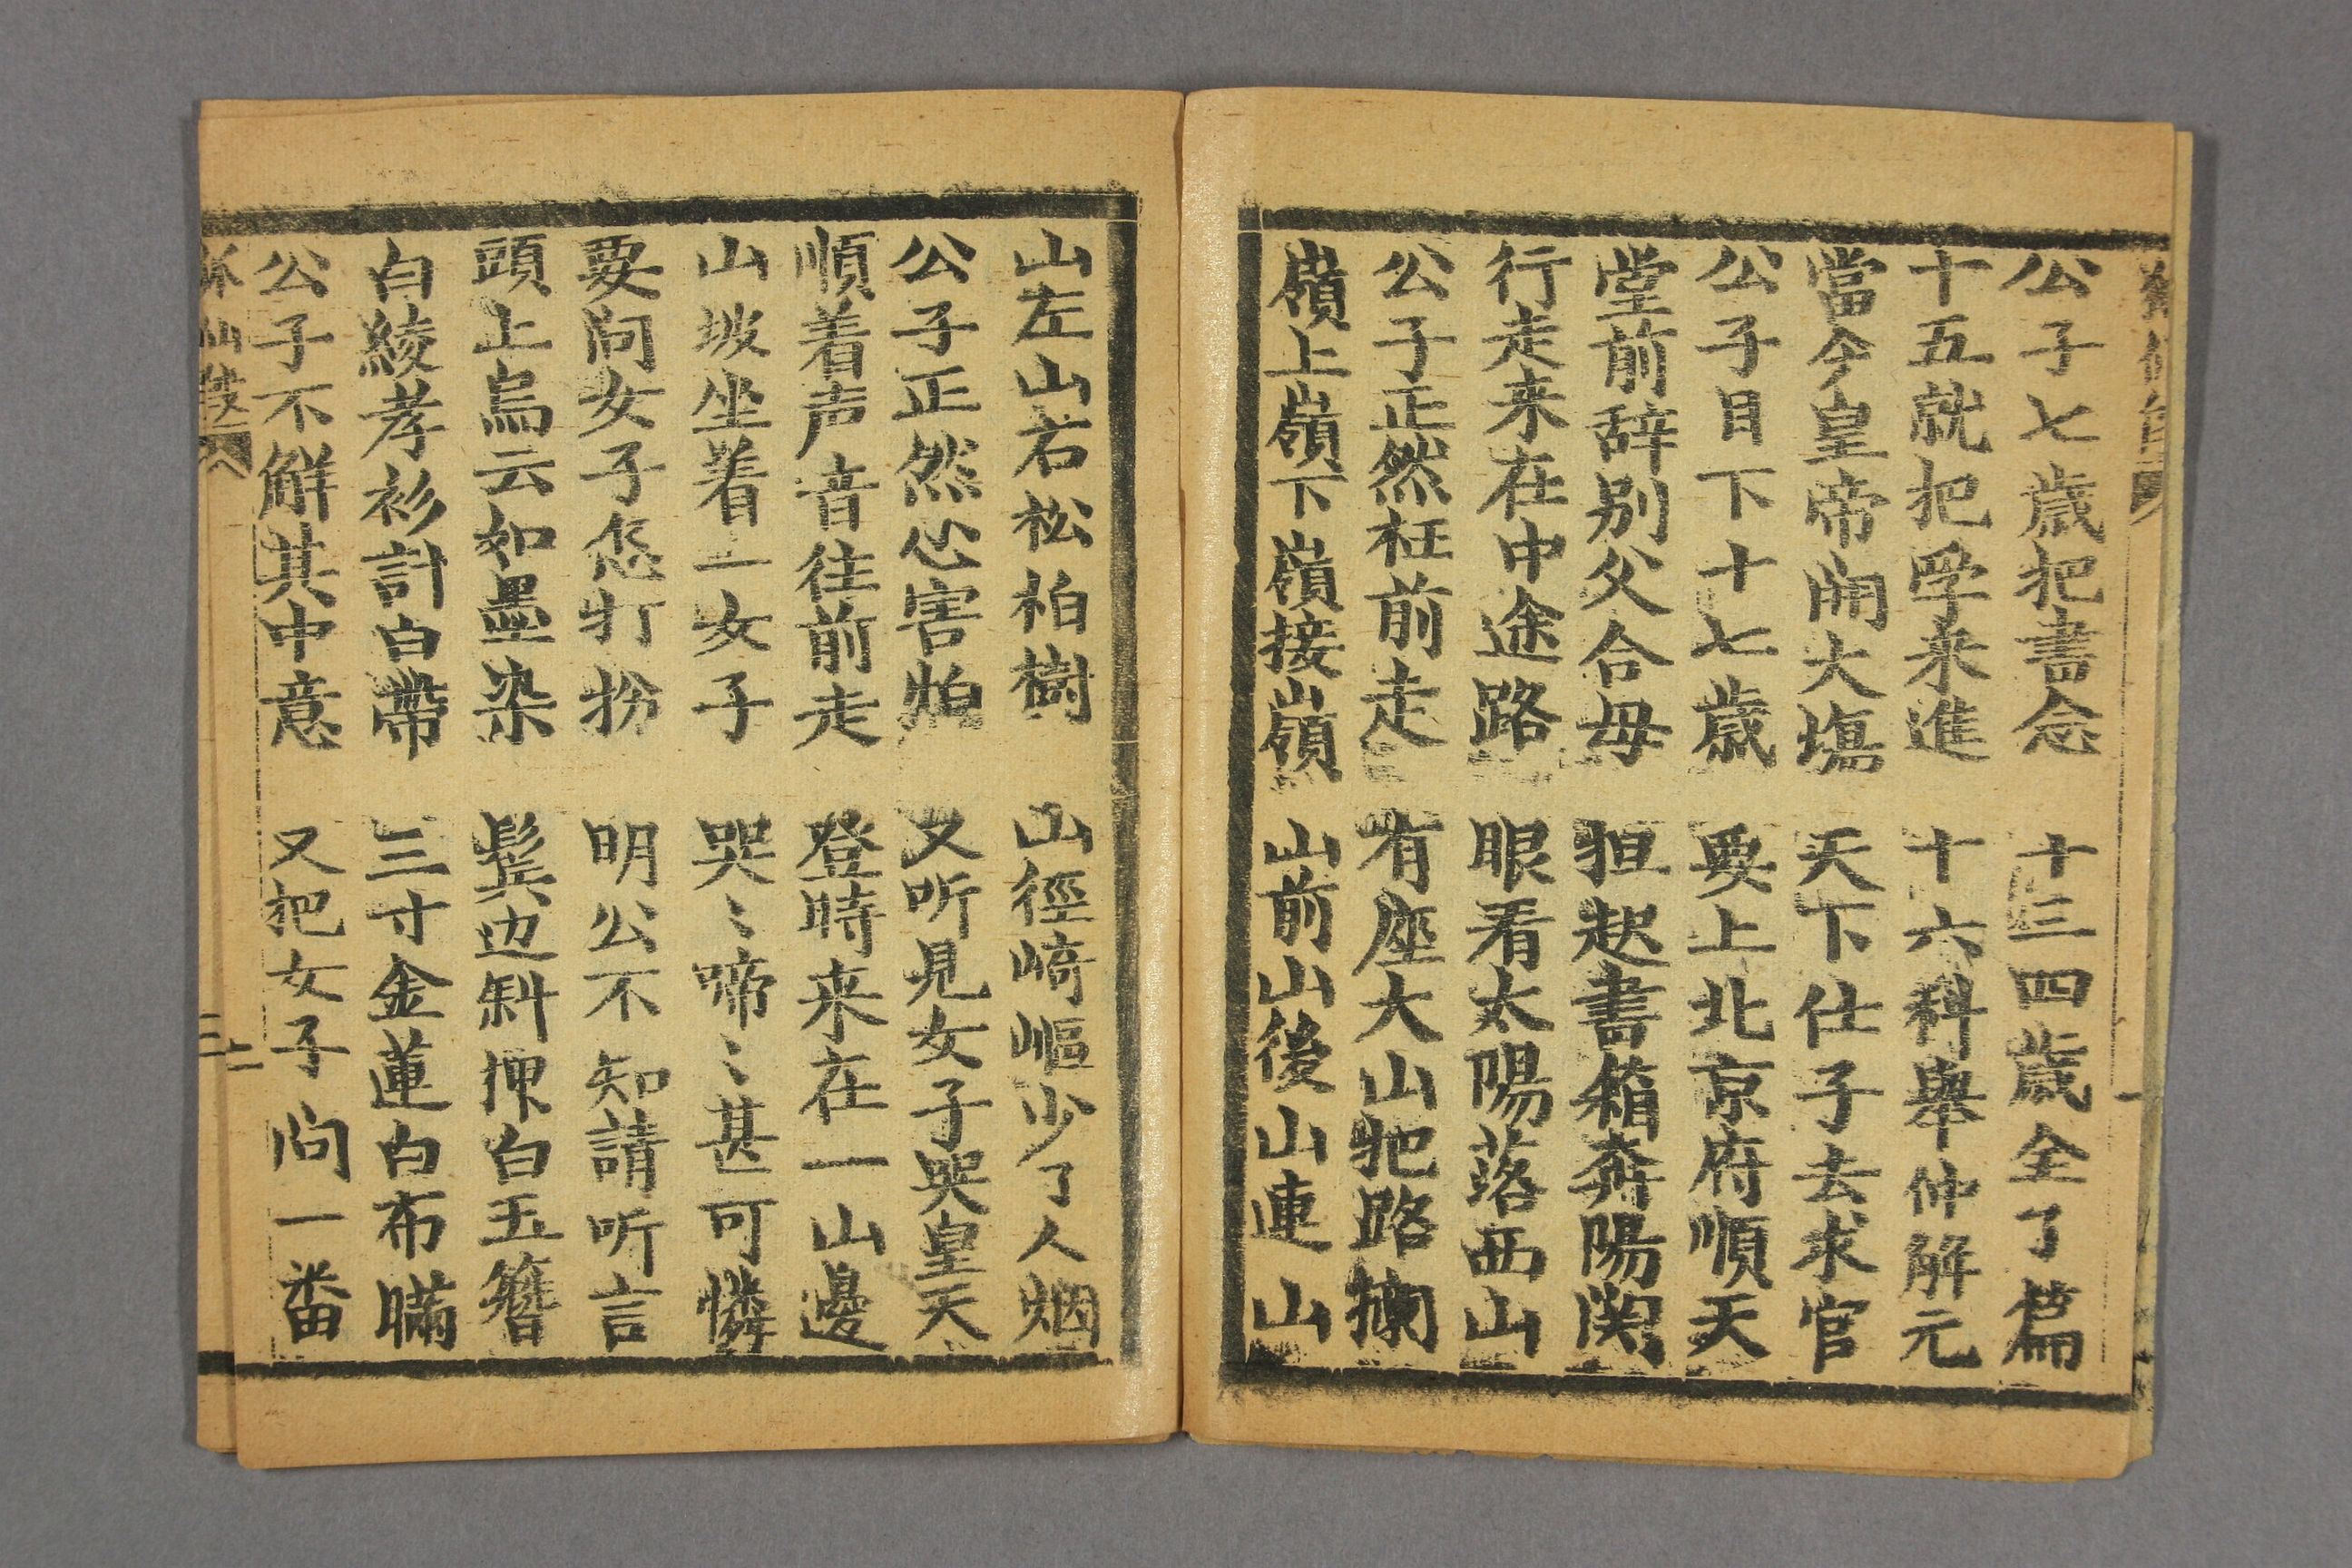 公子七歲把書念　十三四歲全了篇
十五就把孚来進　十六科舉仲解元
當今皇帝開大塲　天下仕子去求官
公子目下十七歲　要上北京府順天
堂前辞别父合母　担起書箱奔陽関
行走来在中途路　眼看太陽落西山
公子正然枉前走　有座大山把路攔
嶺上嶺下嶺接嶺　山前山後山連山
山左山右松柏樹　山徑崎嶇少了人烟
公子正然心害怕　又听見女子哭皇天
順着声音往前走　登時来在一山邊
山坡坐着一女子　哭〻啼〻甚可憐
要问女子怎打扮　明公不知請听言
頭上烏云如墨染　鬂边斜押白玉簪
白綾孝衫計白帶　三寸金蓮白布瞞
公子不觧其中意　又把女子问一番